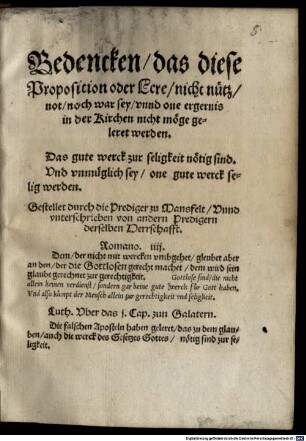 Bedencken / das diese
Proposition oder Lere / nicht nütz /
not / noch war sey / vnnd one ergernis
in der Kirchen nicht möge ge-
leret werden.
Das gute werck zur seligkeit nötig sind.
Vnd vnmüglich sey / one gute werck se-
lig werden.
Gestellet durch die Prediger zu Mansfelt / Vnnd
vnterschrieben von andern Predigern
derselben Herrschafft.
Romano. iiij.
Dem / der nicht mit wercken vmbgehet / gleubet aber
an den / der die Gottlosen gerecht machet / dem wird sein
glaube gerechnet zur gerechtigkeit. Gottlose sind / die nicht
allein keinen verdienst / sondern gar keine gute werck für Gott haben.
Vnd also kömpt der Mensch allein zur gerechtigkeit vnd seligkeit.
Luth. Vber das j. Cap. zun Galatern.
Die falschen Aposteln haben geleret / das zu dem glau-
ben / auch die werck des Gesetzes Gottes / nötig sind zur se-
ligkeit.